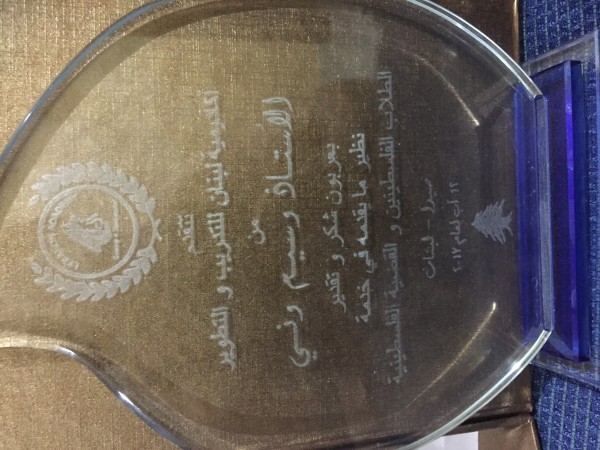 اكاديمية لبنان للتدريب و التطوير
تتقدم
من
الأستاذ وسيم وني
بعربون شكر و تقدير
نظير ما يقدمه في خدمة
الطلاب الفلسطينين و القضية الفلسطينية
صيدا - لبنان
١٢ آب لعام ٢٠١٧